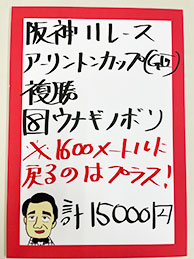 阪神11レース
アーリントンカップ(GⅢ)
複勝
⑧ウナギノボリ
※1600メートルに
戻るのはプラス!
計15000円